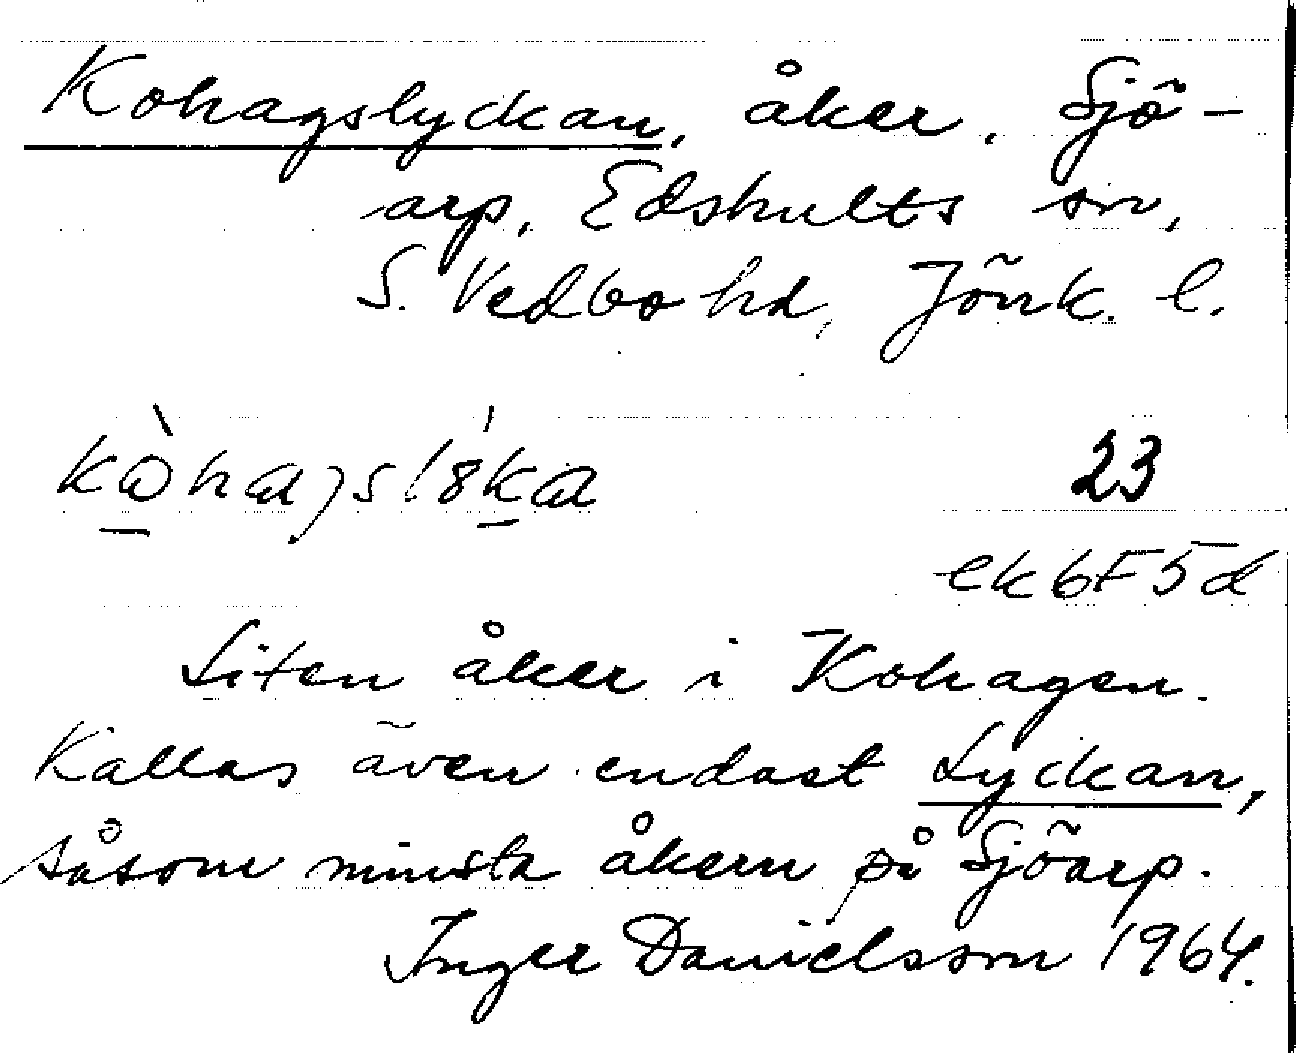 Kohagslyckan, åker, Sjö-
arp, Edshults sn,
S. Vedbo hd, Jönk. l.
23
ek 6F5d
Liten åker i Kohagen.
Kallas även endast Lyckan,
såsom minsta åkern på Sjöarp.
Inger Danielsson 1964.